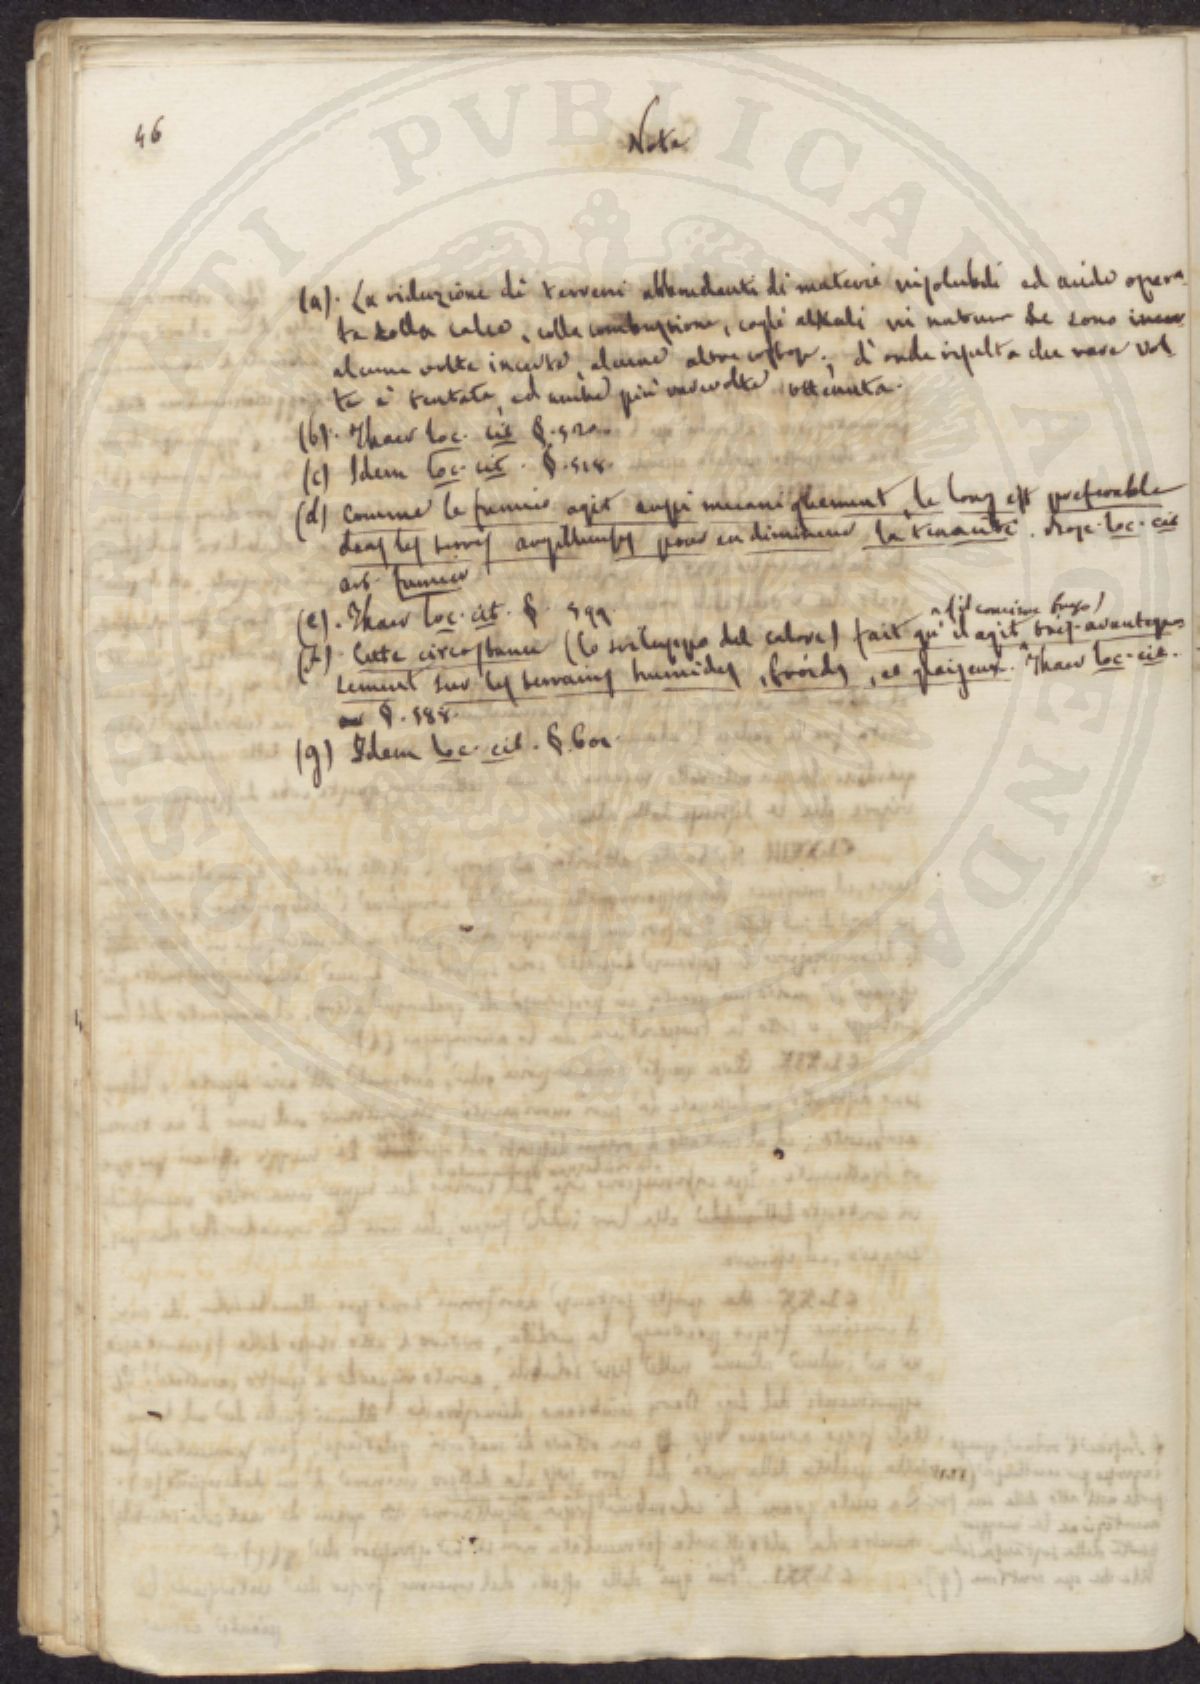 46
Nota
(a). La riduzione di terreni abbondanti di materie insolubili ed acide opera-
ta colla calce, colla combustione, cogli alkali in natura se sono
alcune volte incerte, alcune altre costose; d'onde risulta che rare vol-
te è tentata, ed anche più rare volte ottenuta.
(b). Thaer loc. cit. §. 520.
(c) Idem loc. cit. §. 518.
(d) Comme le fumier agit aussi mecaniquement, le long est preferable
dans les terres argilleuses pour en diminuer la tenacité. loc. cit
art. fumier
(e). Thaer loc. cit. §. 599.
(il concime
(f). Cette circostance (lo sviluppo del calore) fait qu'il agit très-avantageu-
sement sur les terrains humides, froids, et glaiseux. Thaer loc. cit.
§. 588.
(g) Idem loc. cit. §. 601.
POSSIDENTI PUBLICAE ALENDAE